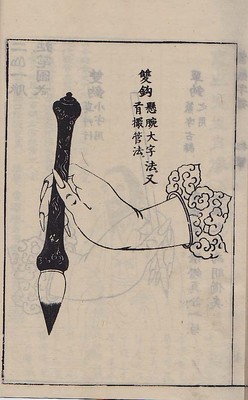 雙鈎
懸腕大字法又
有撮管法